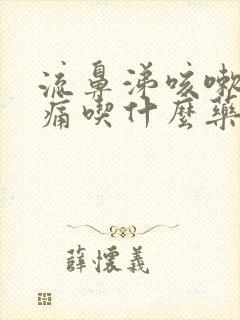 流鼻涕咳嗽
痛喫什麼藥
薛懷義